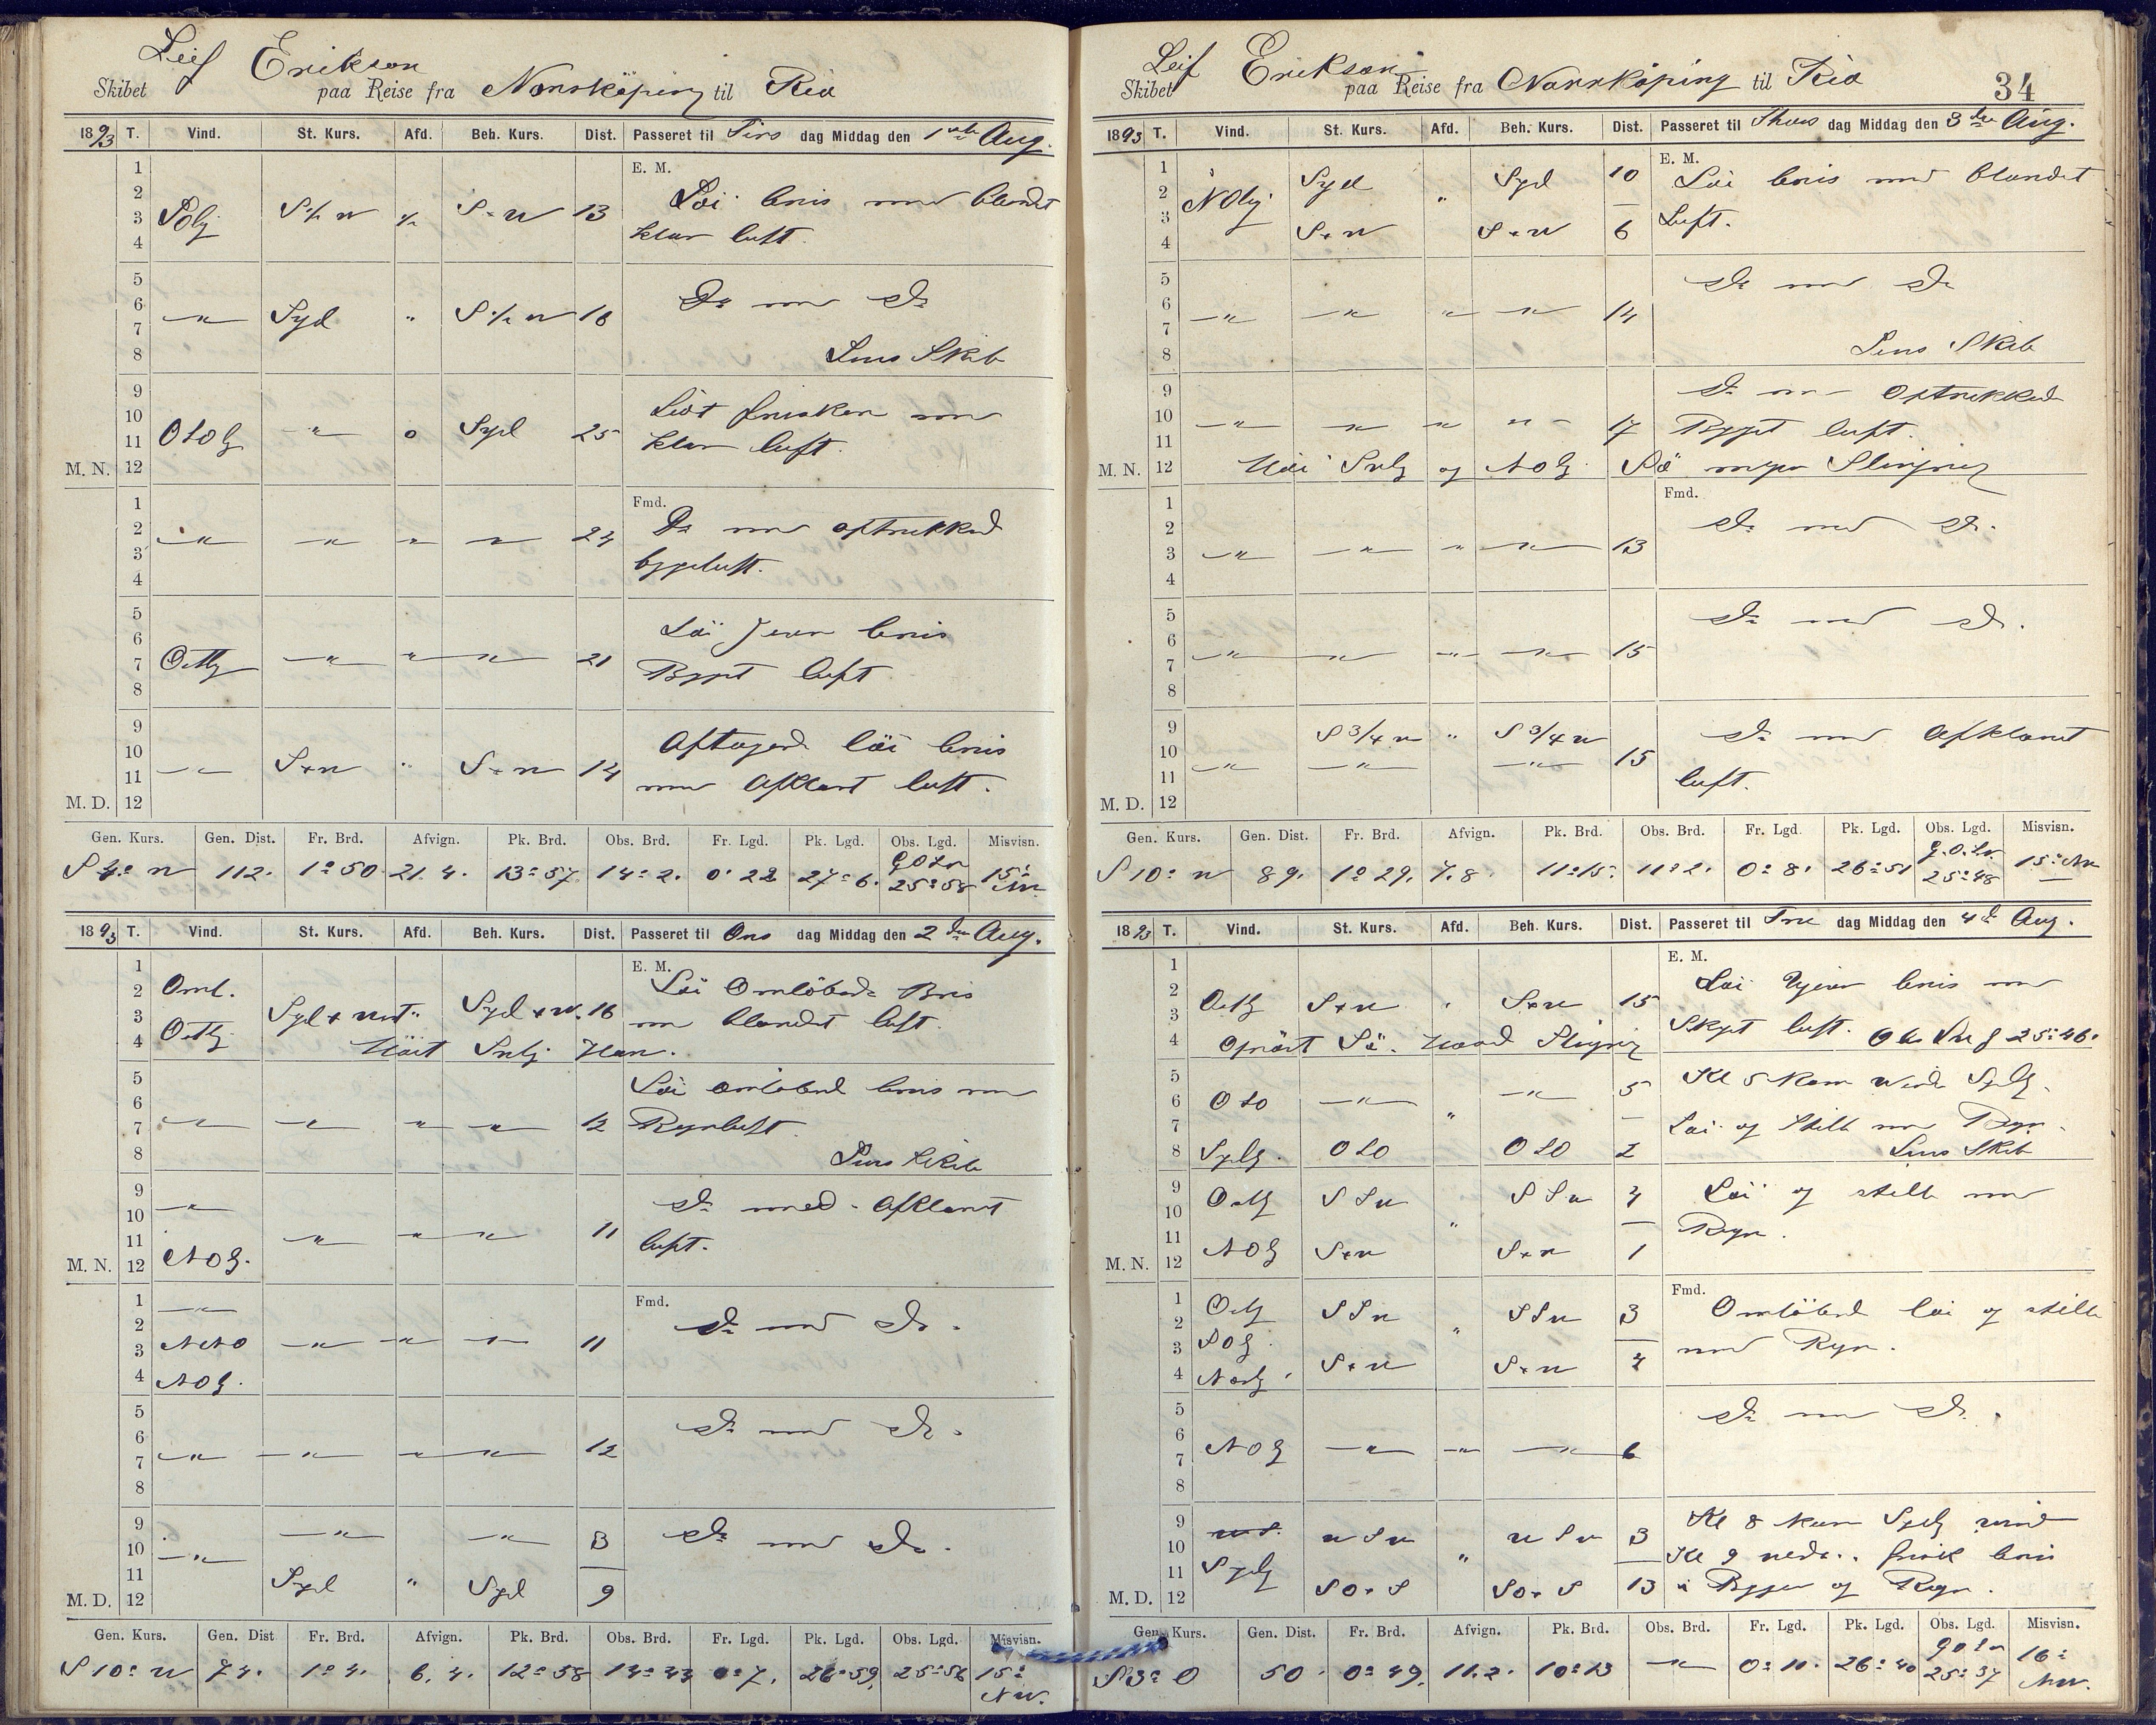 Leif Erikson
Skibet paa Reise fra Norrköping til Rio
1893 T. Vind. St. Kurs. Afd. Beh. Kurs. Dist. Passeret til Tirs dag Middag den 1ste Aug.
E. M.
1
2 Löi bris med blandet
3 SOlg S½W ½ S×W 13
4 klar luft.
5
6 Do med Do
7 —"— Syd " S½W 16
8 Lens Skib
9
10 Lidt frisken med
11 OSOlg —"— 0 Syd 25 klar luft.
M. N. 12
Fmd.
1
2 Do med optrukked
3 —"— —"— —"— —"— 24
4 bygeluft.
5
6 Löi Jevn bris
7 Ostlg —"— —"— —"— 21 Byget luft
8
9
10 Aftagende löi bris
11 —"— S×W " S×W 14 med Afklaret luft.
M. D. 12
Gen. Kurs. Gen. Dist. Fr. Brd. Afvign. Pk. Brd. Obs. Brd. Fr. Lgd. Pk. Lgd. Obs. Lgd. Misvisn.
S 4° W 112. 1°50. 21.4. 13°57 14°2. 0°22 27°6. 25°58 15° NW.
1893 T. Vind. St. Kurs. Afd. Beh. Kurs. Dist. Passeret til Ons dag Middag den 2den Aug.
E. M.
1 Löi Omlöbende Bris
2 Oml.
3 Syd×West " Syd×W. 16 med blandet luft.
4 Ostlg Höit Svlg Hav.
5 Löi omlöbend bris med
6
7 —"— —"— —"— —"— 12 Regnluft
8 Lens Skib
9 —"— Do med Afklaret
10
11 —"— —"— —"— 11 luft.
M. N. 12 NOlg.
Fmd.
1 —"—
2 Do med Do.
3 NNO —"— —"— —"— 11
4 NOlg.
5
6 Do med Do.
7 —"— —"— —"— —"— 12
8
9 —"— —"— 3 Do med Do.
10 —"—
11
M. D. 12 Syd " Syd 9
Gen. Kurs. Gen. Dist Fr. Brd. Afvign. Pk. Brd. Obs. Brd. Fr. Lgd. Pk. Lgd. Obs. Lgd. Misvisn.
S 10° W 74. 1°4. 6.4. 12°58 12°43 0°7. 26°59. 25°56 15° NW.
34
Leif Erikson
Skibet paa Reise fra Norrköping til Rio
1893 T. Vind. St. Kurs. Afd. Beh. Kurs. Dist. Passeret til Thors dag Middag den 3die Aug.
E. M.
1 Syd Syd 10 Löi bris med blandet
2 NOlg "
3 Luft.
4 S×W S×W 6
5
6 Do med Do
7 —"— —"— —"— —"— 14
8 Lens Skib
9 Do med Optrukked
10
11 —"— —"— —"— —"— 17 Byget luft.
M. N. 12 Höi Svlg og NOlg. Sö megen Slingring
Fmd.
1
2 Do med Do.
3 —"— —"— —"— —"— 13
4
5
6 Do med Do.
7 —"— —"— —"— —"— 15
8
9 S 3/4 W " S 3/4 W Do med Afklaret
10
11 —"— —"— —"— 15 luft.
M. D. 12
Gen. Kurs. Gen. Dist. Fr. Brd. Afvign. Pk. Brd. Obs. Brd. Fr. Lgd. Pk. Lgd. Obs. Lgd. Misvisn.
S 10° W 89. 1°29. 7.8. 11°15. 11°2. 0°8. 26°51 25°48 15° NW
1893 T. Vind. St. Kurs. Afd. Beh. Kurs. Dist. Passeret til Fre dag Middag den 4de Aug.
E. M.
1 Löi Ujevn bris med
2
3 Ostlg S×W " S×W 15 Skyet luft. 25°46.
4 Oprört Sö. Haard Slingring
5 Kl 5 kom Vind Sydlg.
6 OSO —"— " —"— 5
7 Löi og Stille med Regn.
8 Sydlg. OSO OSO 2 Lens Skib
9 Ostlg SSW SSW 4 Löi og stille med
10 "
11 Regn.
M. N. 12 NOlg S×W S×W 1
Fmd.
1 Ostlg SSW SSW 3 Omlöbend löi og stille
2 "
3 SOlg. med Regn.
4 Nordlg. S×W S×W 4
5
6 Do med Do.
7 NOlg —"— —"— —"— 6
8
9 WSW WSW 3 Kl 8 kom Sydlg vind
10 " Kl 9 frisk bris
11 Sydlg
M. D. 12 SO×S SO×S 13 i Bygger og Regn.
Gen. Kurs. Gen. Dist. Fr. Brd. Afvign. Pk. Brd. Obs. Brd. Fr. Lgd. Pk. Lgd. Obs. Lgd. Misvisn.
S 13° O 50. 0°49. 11.2. 10°13 —"— 0°11. 26°40 25°37 16° NW.